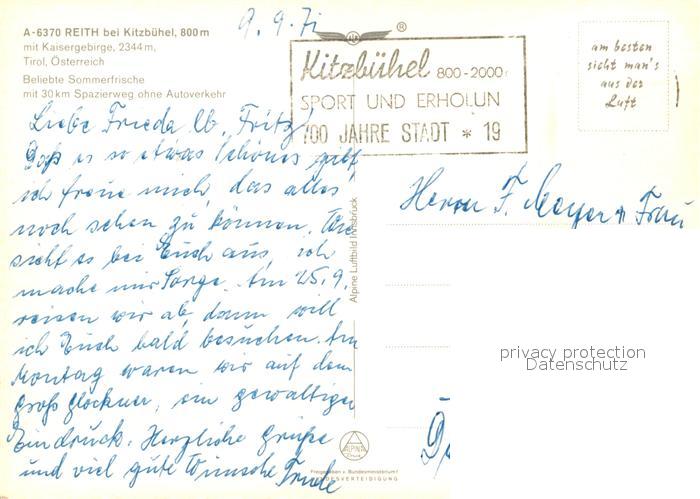 A-6370 REITH bei Kitzbühel, 800m
mit Kaisergebirge, 2344m,
Tirol, Österreich
Beliebte Sommerfrische
mit 30km Spazierweg ohne Autoverkehr
9.9.71
®
Kitzbühel 800-2000
SPORT UND ERHOLUN
700 JAHRE STADT * 19
am besten
sieht man's
aus der
Luft
Liebe Frieda lb. Fritz!
Daß es so etwas Schönes gibt,
ich freue mich, das alles
noch sehen zu können. Wie
sieht es bei Euch aus, ich
mache mir Sorge. Am 25.9.
reisen wir ab, dann will
ich Euch bald besuchen. Am
Montag waren wir auf dem
Großglockner, ein gewaltiger
Eindruck. Herzliche Grüße
und viel gute Wünsche Trude
Herrn F. Meyer + Frau
Alpine Luftbild Innsbruck
privacy protection
Datenschutz
ALPINA
Freigegeben v. Bundesministerium f.
DESVERTEIDIGUNG